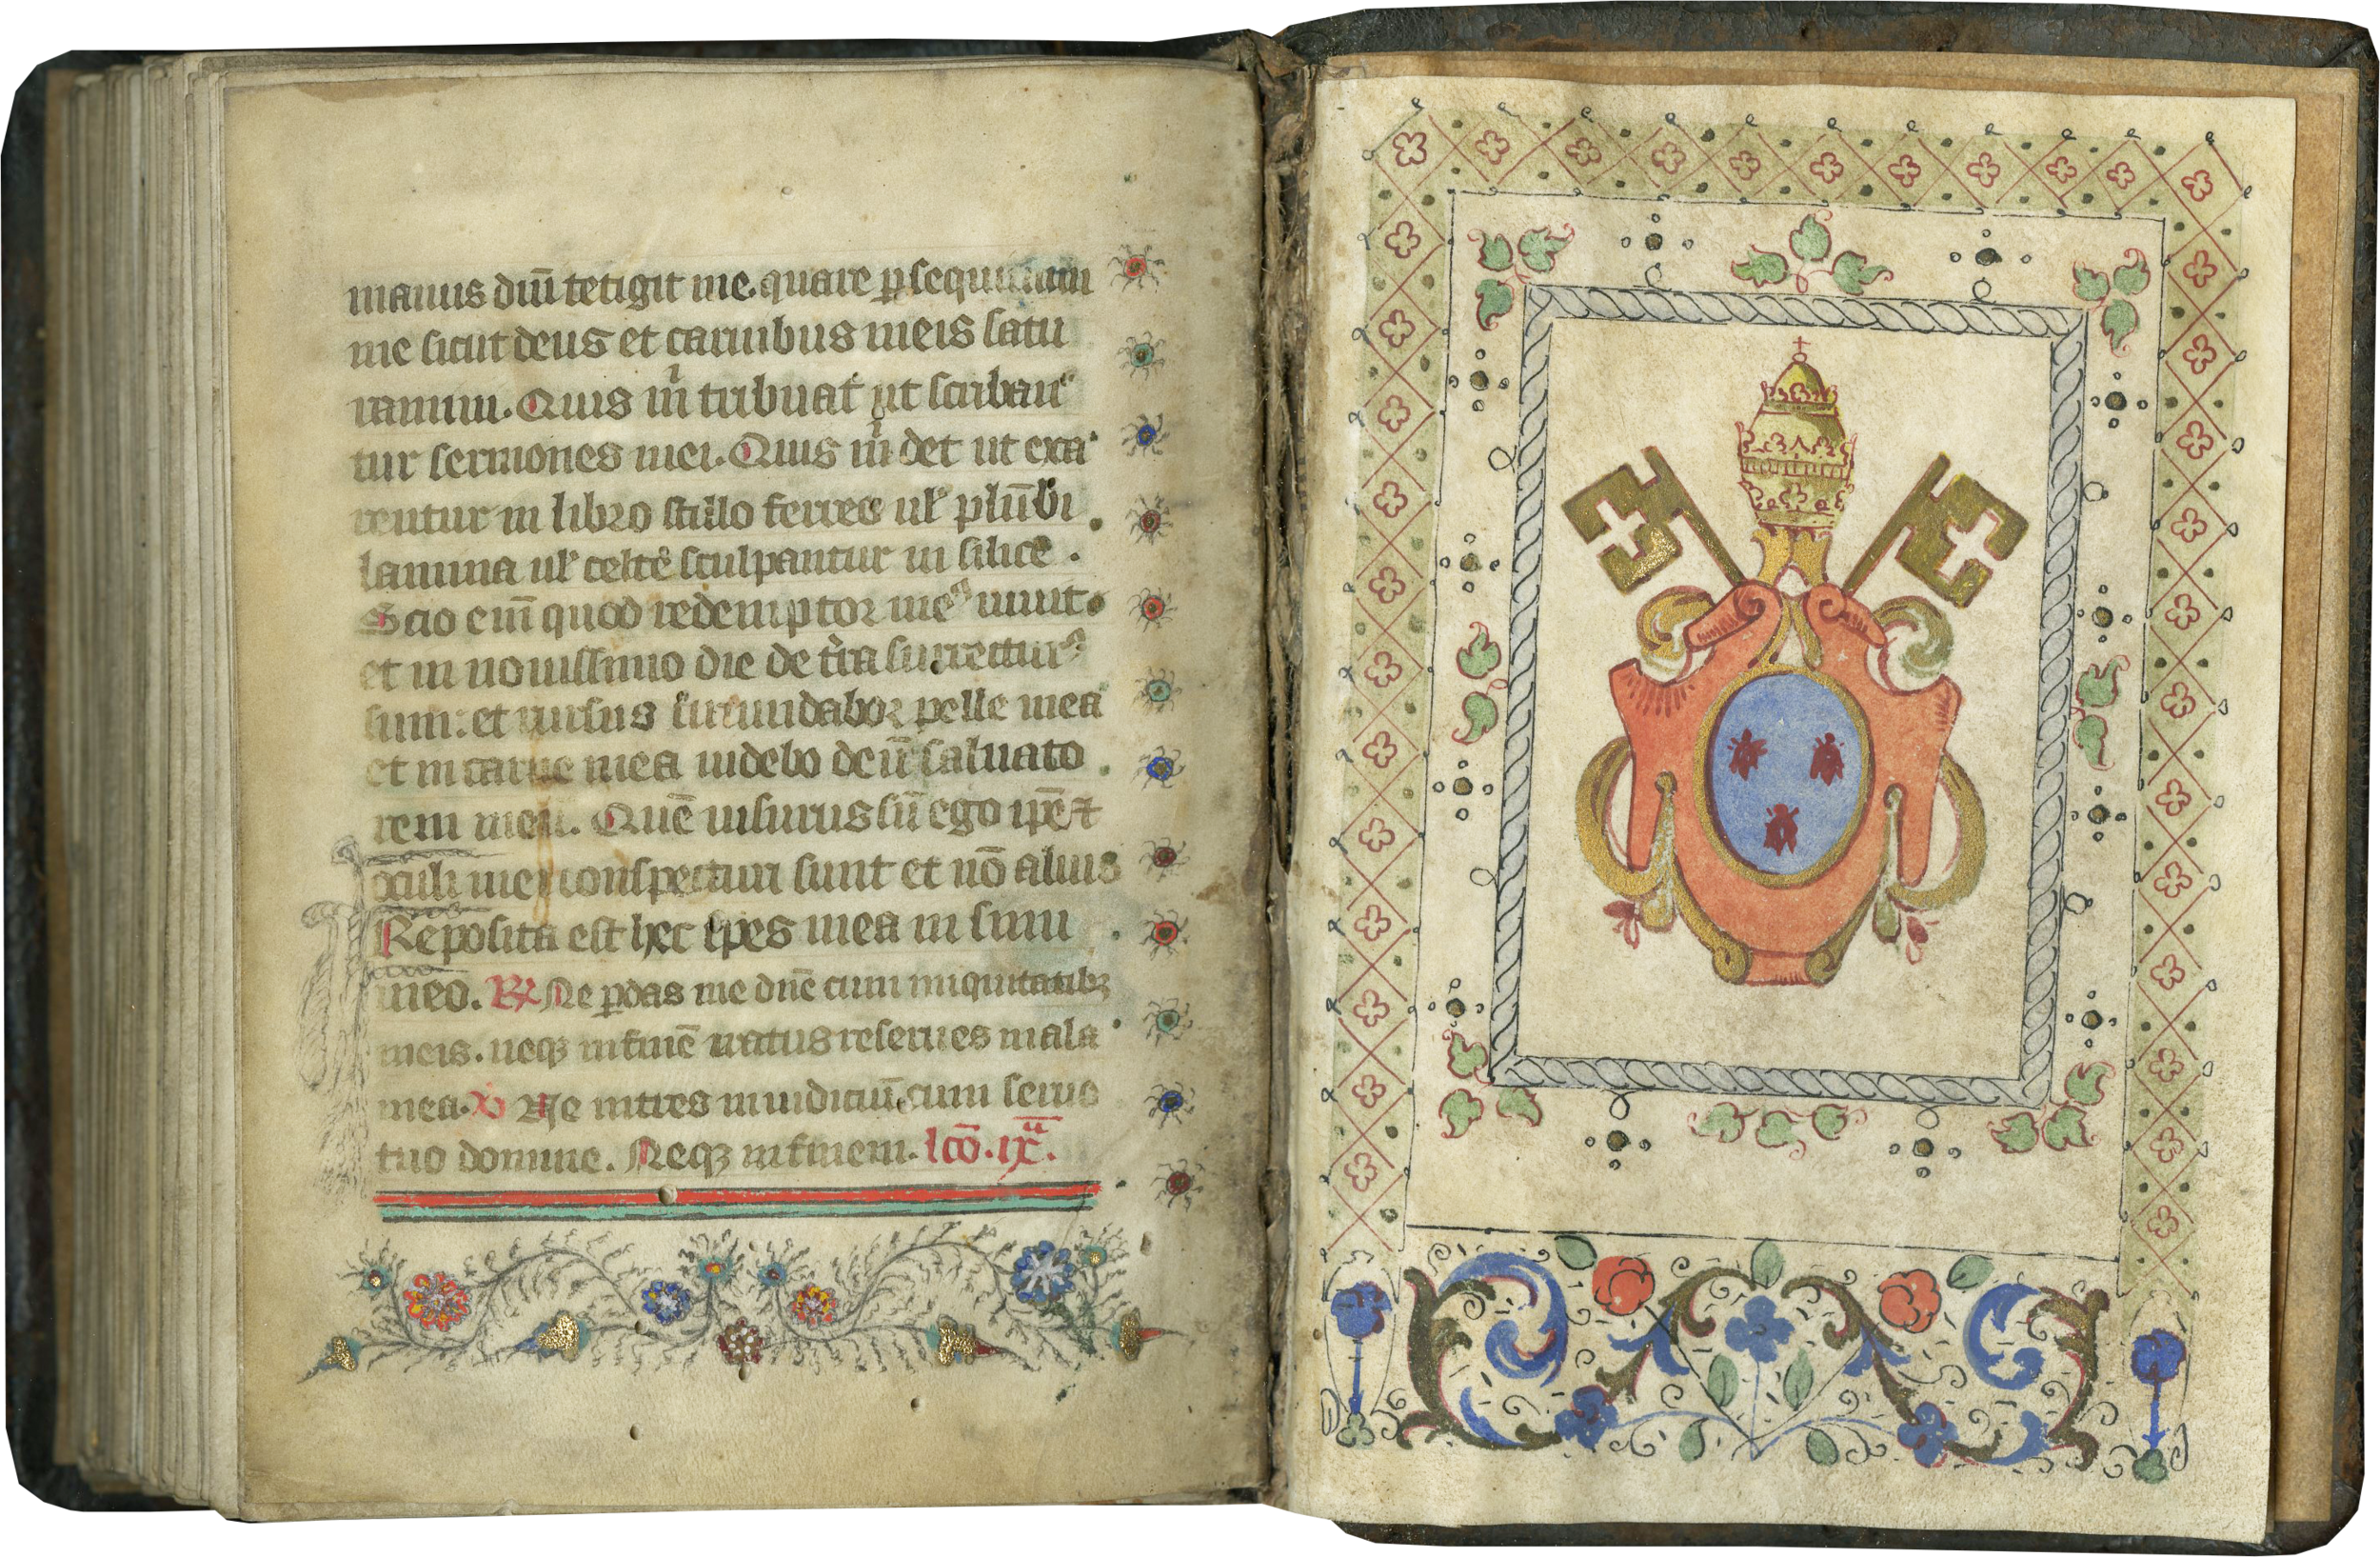 manus dnī tetigit me. quare p̱sequimini
me sicut deus et carnibus meis satu
ramini. Quis m̄ tribuat ut scriban
tur sermones mei. Quis m̄ det ut exa
rentur in libro stillo ferreo ul̄ plūbi
lamina ul̄ celte sculpantur in silice.
Scio enī quod redemptor meꝰ uiuit.
et in nouissimo die de t̄ra surrecturꝰ
sum: et rursus circundabor pelle mea
et in carne mea uidebo deū saluato
rem meū. Quē uisurus sū ego ip̄e ⁊
oculi mei conspecturi sunt et nō alius
Reposita est hec spes mea in sinu
meo. R̷ Ne p̱das me dn̄e cum iniquitatibꝫ
meis. neqꝫ in finē iratus reserues mala
mea. V̷ Ne intres in iudiciū cum seruo
tuo domine. Neqꝫ in finem. lc̄o. ix.ᵃ